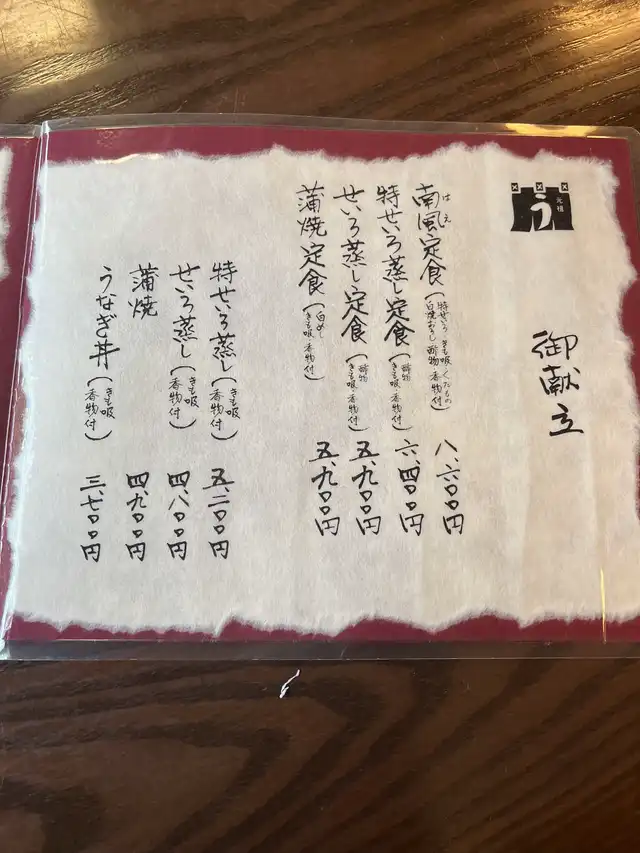 元祖
う
御献立
南風定食(特せいろ きも吸 くだもの 白焼おろし 酢物 香物付) 八、六〇〇円
はえ
特せいろ蒸し定食(酢物 きも吸 香物付) 六、四〇〇円
せいろ蒸し定食(酢物 きも吸 香物付) 五、九〇〇円
蒲焼定食(白めし きも吸 香物付) 五、九〇〇円
特せいろ蒸し(きも吸 香物付) 五、二〇〇円
せいろ蒸し(きも吸 香物付) 四、八〇〇円
蒲焼 四、九〇〇円
うなぎ丼(きも吸 香物付) 三、七〇〇円